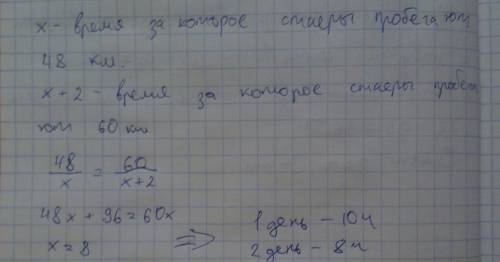 x - время за которое стаеры пробегают
48 км.
x + 2 - время за которое стаеры пробега
ют 60 км
48/x = 60/x+2
48x + 96 = 60x
x = 8 ⇒ 1 день - 10 ч
2 день - 8 ч